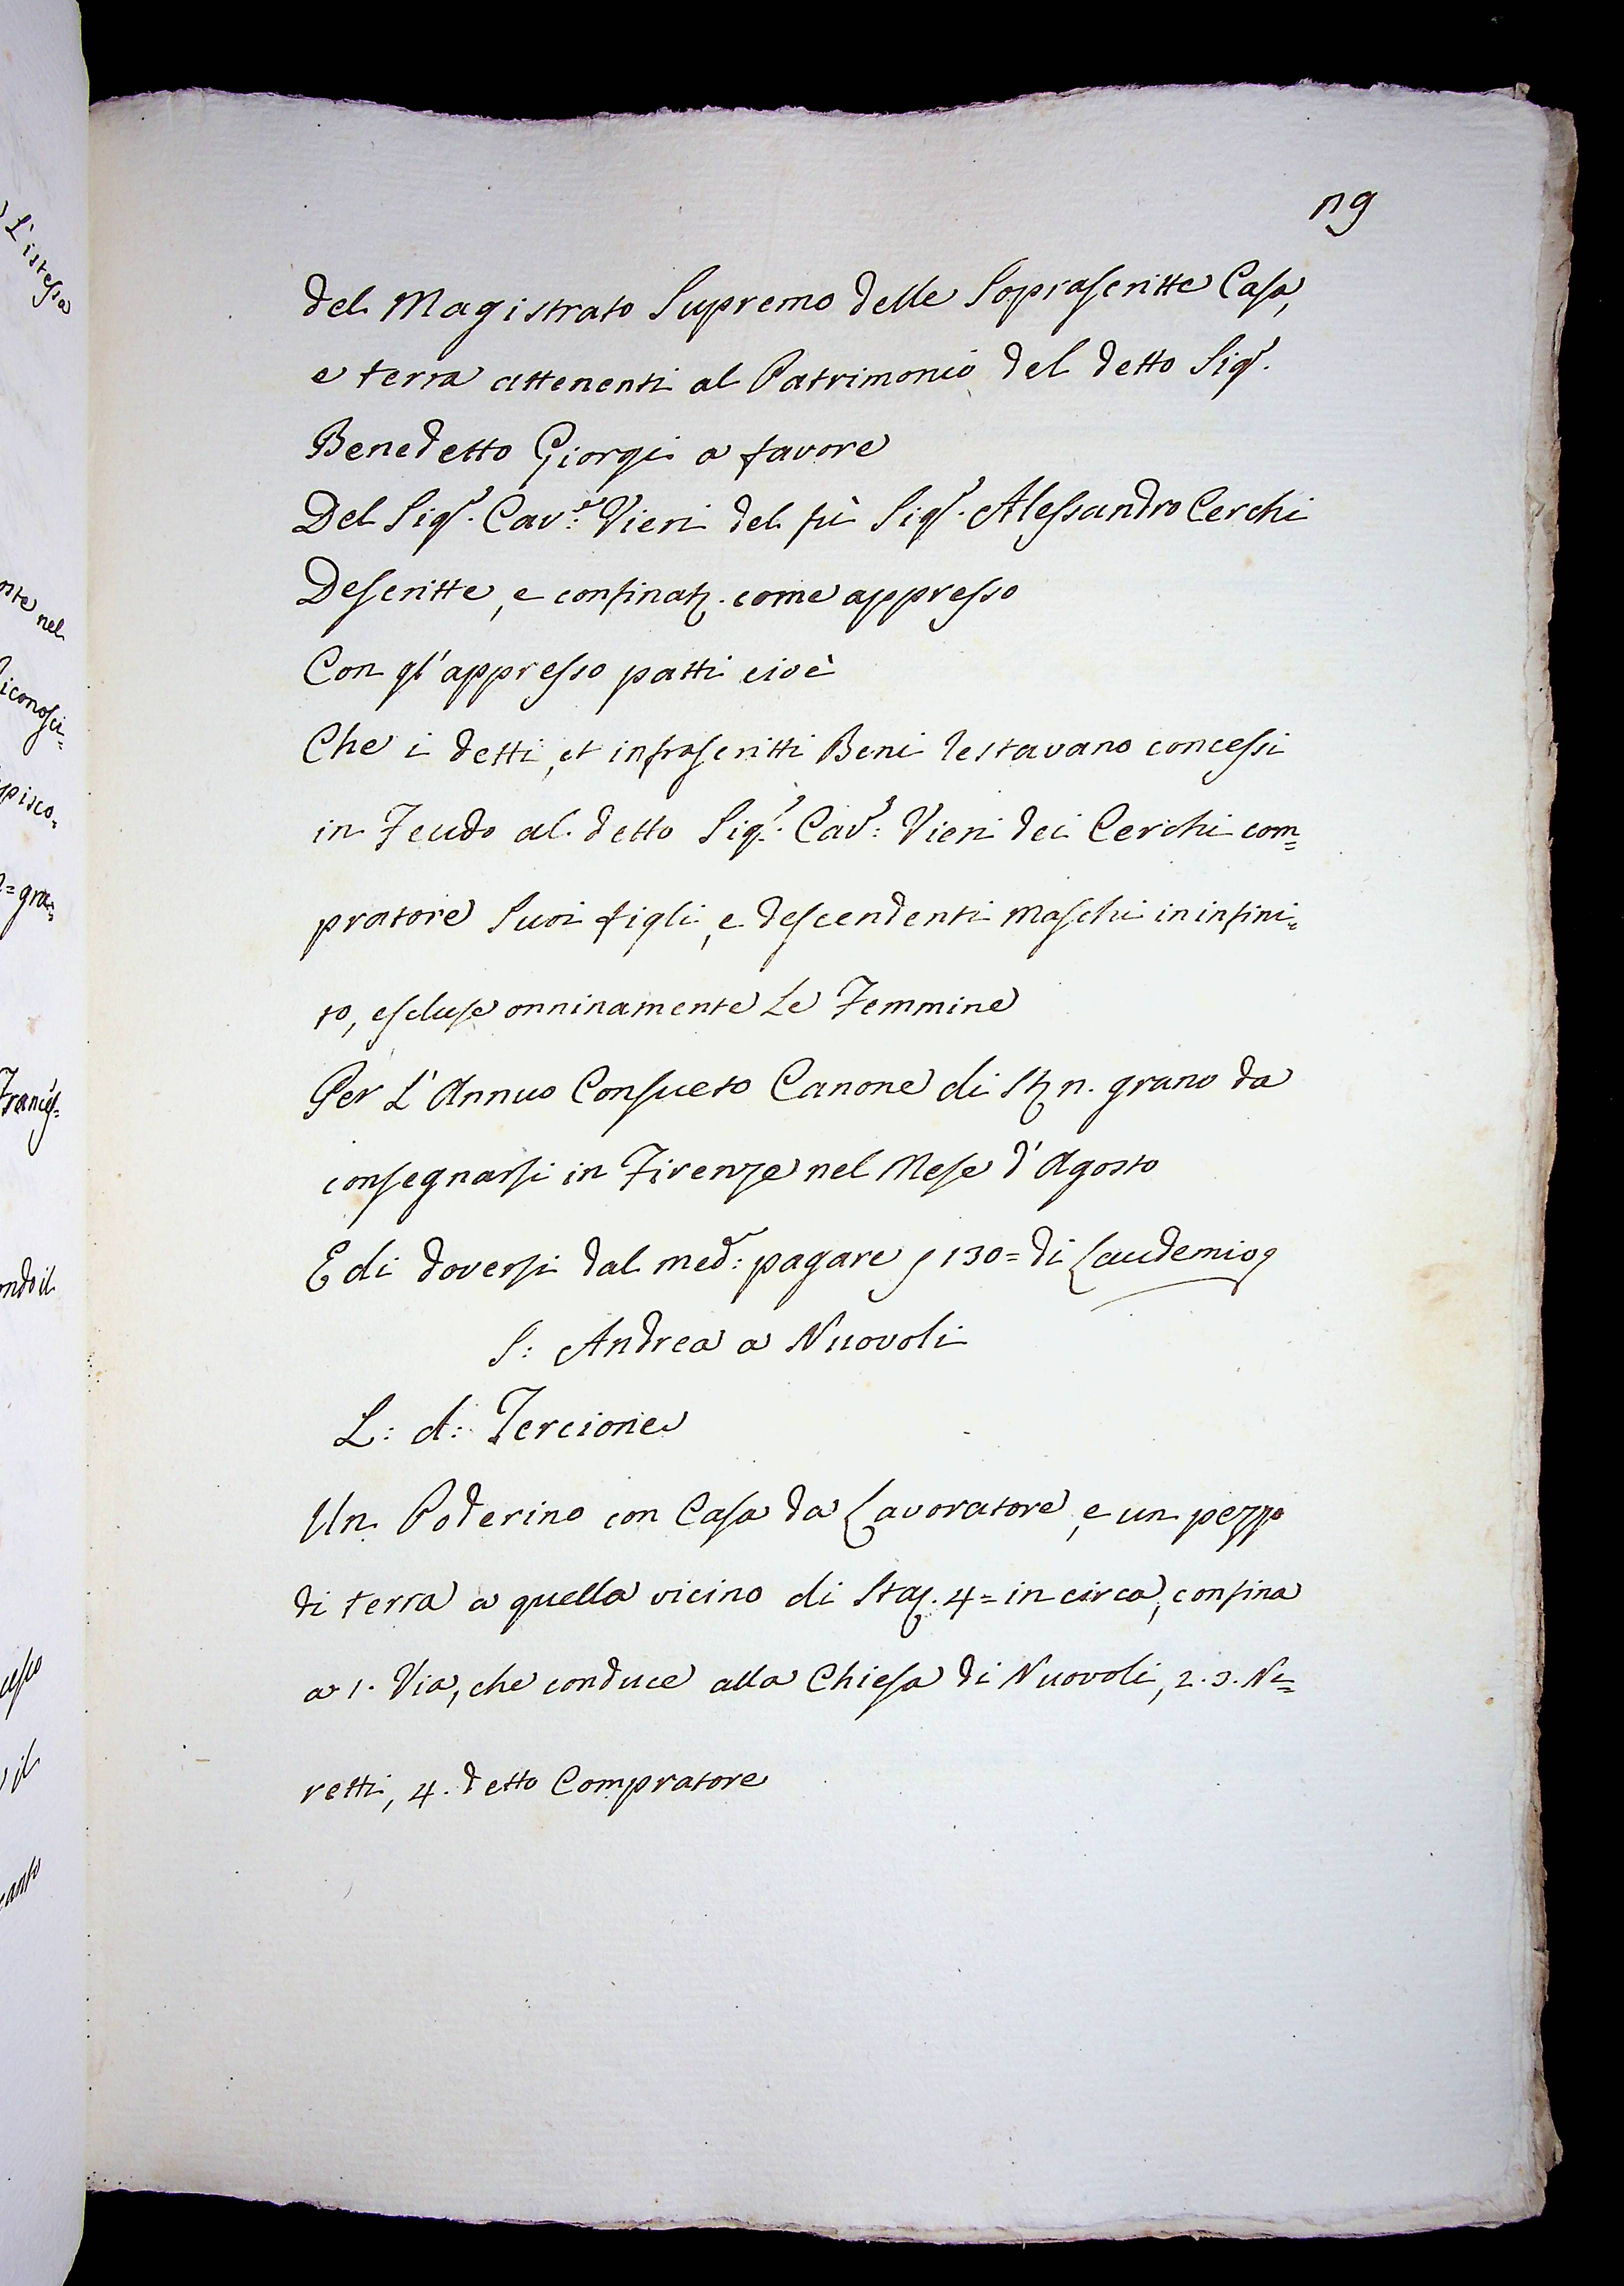 del Magistrato Supremo delle Soprascritte Casa,
e terra attenenti al Patrimonio del detto Sigr.
Benedetto Giorgi a favore
Del Sigr. Cav:e Vieri del fù Sigr. Alessandro Cerchi
Descritte, e confinat. come appresso
Con gl'appresso patti cioè
Che i detti, et infrascritti Beni restavano concessi
in Feudo al detto Sigr. Cavr: Vieri dei Cerchi com=
pratore Suoi figli, e descendenti Maschi in infini=
to, escluse onninamente Le Femmine
Per L'Annuo Consueto Canone di St n. grano da
consegnarsi in Firenze nel Mese d'Agosto
E di doversi dal med: pagare 130= di Laudemio
S: Andrea a Nuovoli
L: d: Tercione
Un Poderino con Casa da Lavoratore, e un pezzo
di terra a quella vicino di Sta. 4= in circa, confina
a 1. Via, che conduce alla Chiesa di Nuovoli, 2. 3. Ne=
retti, 4. detto Compratore
L'istessa
nel
gra=
il